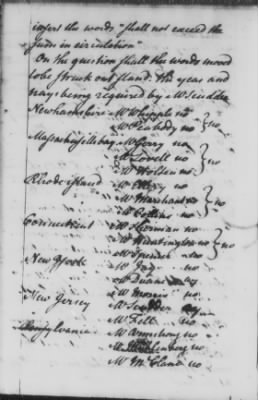 insert the words "shall not exceed the
sum in circulation"
On the question shall the words moved
to be struck out stand. The yeas and
nays being required by Mr Scudder
Newhampshire Mr Whipple no
Mr Peabody no } no
Massachusettsbay Mr Gerry no
Mr Lovell no
Mr Holten no } no
Rhode island Mr Ellery no
Mr Marchant no
Mr Collins no } no
Connecticut Mr Sherman no
Mr Huntington no } no
Mr Spencer no
New York Mr Jay no
Mr Duane
Mr Morris no
New Jersey Mr Scudder
Mr Fell no
Pensylvania Mr Armstrong no
Mr Muhlenberg no
Mr McClene no